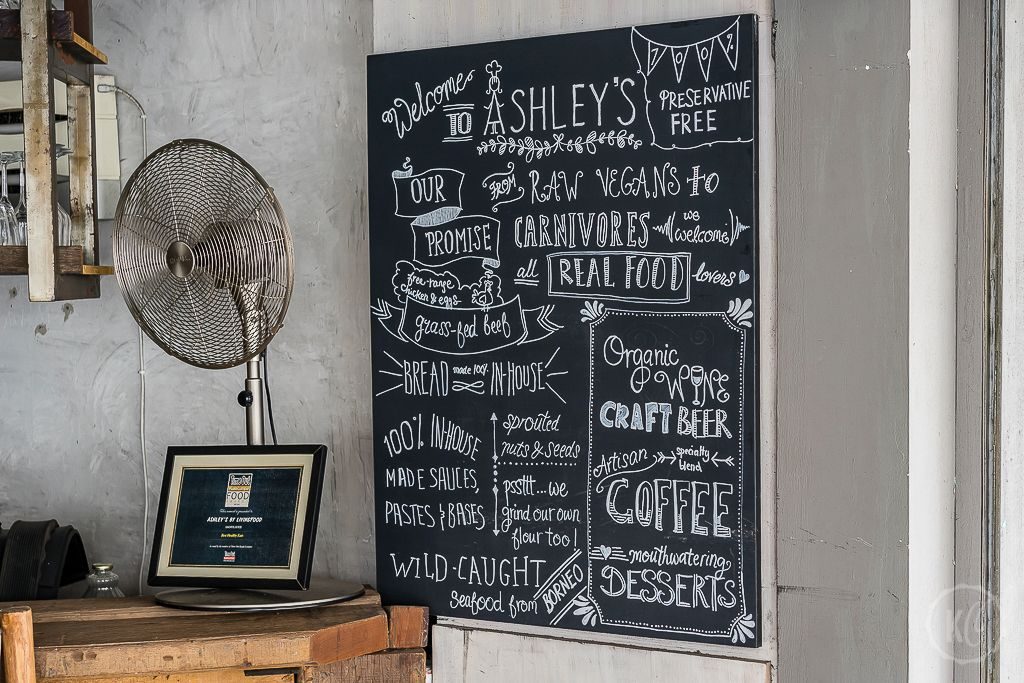 Welcome
TO
ASHLEY'S
100%
PRESERVATIVE
FREE
OUR
PROMISE
FROM RAW VEGANS to
CARNIVORES (we welcome)
all REAL FOOD lovers
free-range
chicken & eggs
grass-fed beef
BREAD made 100% IN-HOUSE
100% IN-HOUSE
MADE SAUCES,
PASTES & BASES
sprouted
nuts & seeds
psstt...we
grind our own
flour too!
WILD-CAUGHT
seafood from BORNEO
Organic
WINE
CRAFT BEER
Artisan specialty
blend
COFFEE
mouthwatering
DESSERTS
Time Out
FOOD
ASHLEY'S BY LIVINGFOOD
KC